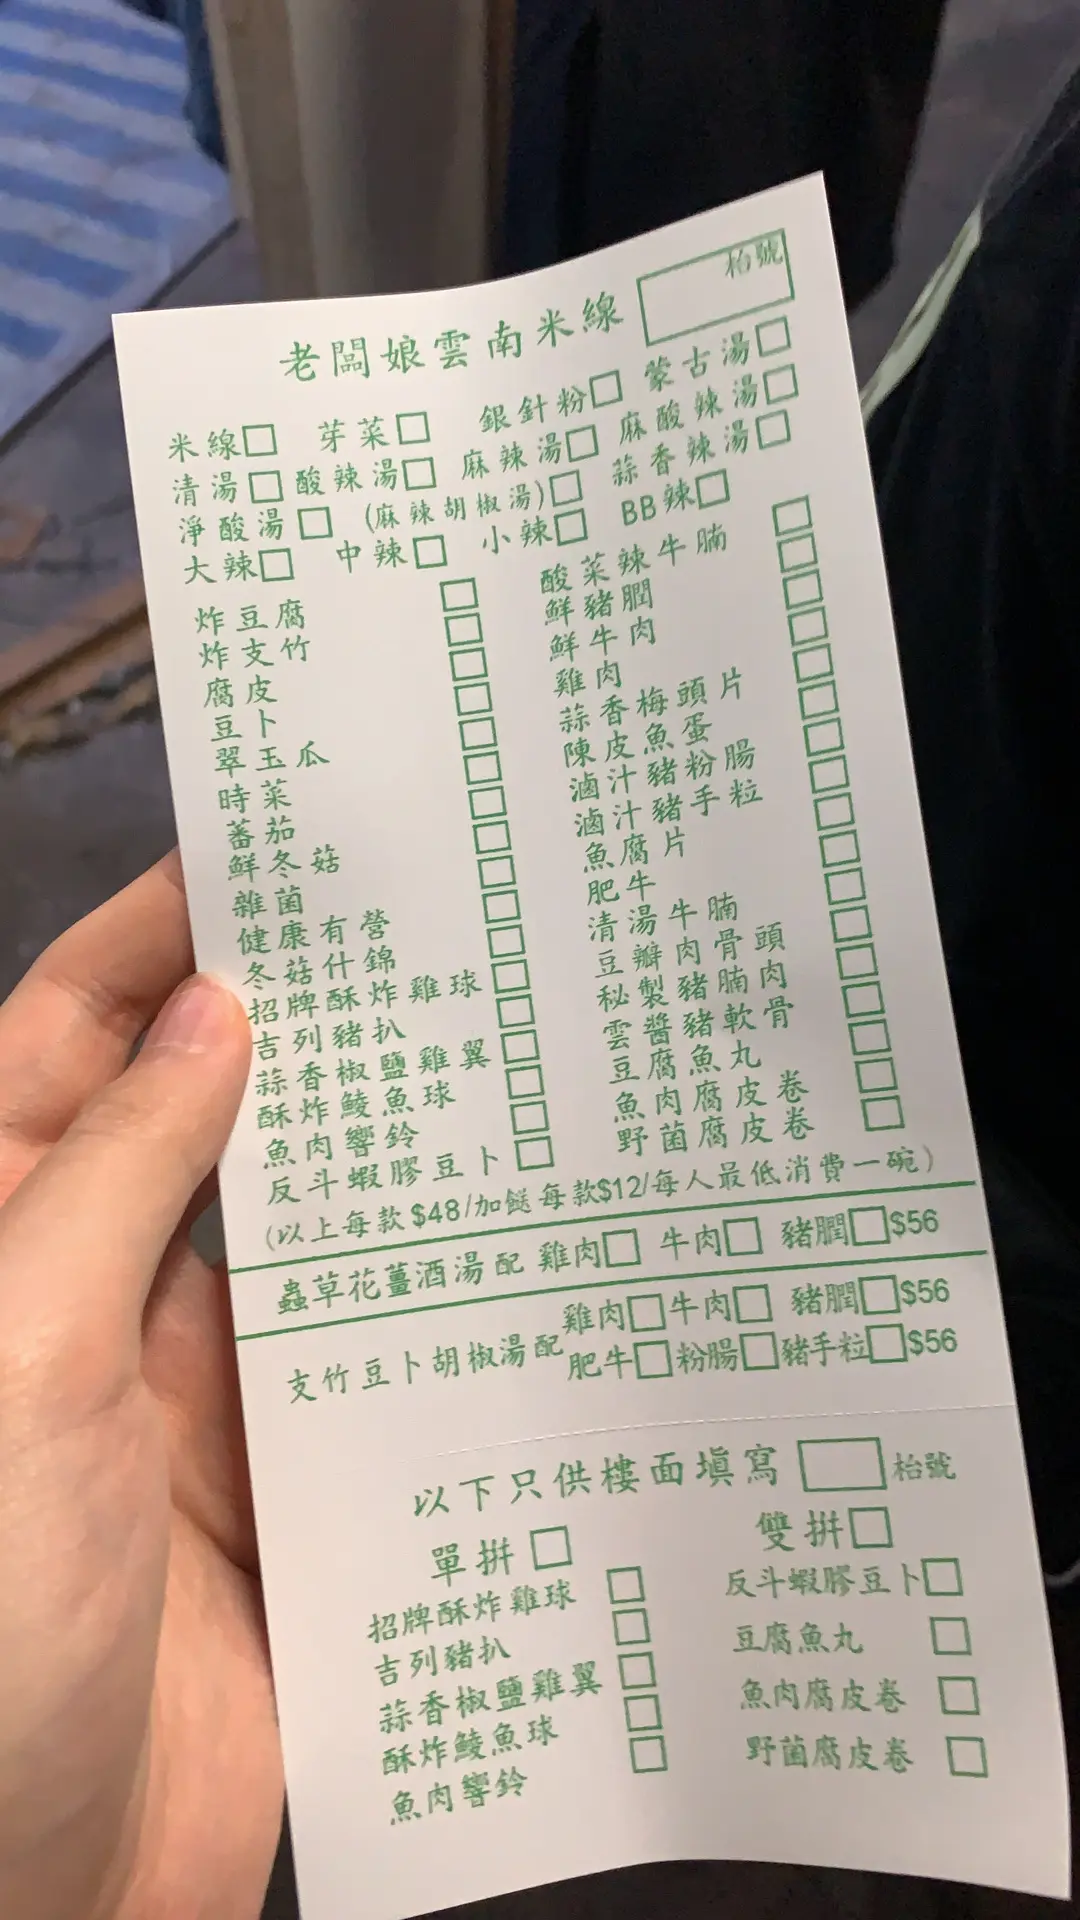 老闆娘雲南米線 枱號
米線 芽菜 銀針粉 蒙古湯
清湯 酸辣湯 麻辣湯 麻酸辣湯
淨酸湯 (麻辣胡椒湯) 蒜香辣湯
大辣 中辣 小辣 BB辣
炸豆腐 酸菜辣牛腩
炸支竹 鮮豬膶
腐皮 鮮牛肉
豆卜 雞肉
翠玉瓜 蒜香梅頭片
時菜 陳皮魚蛋
蕃茄 滷汁豬粉腸
鮮冬菇 滷汁豬手粒
雜菌 魚腐片
健康有營 肥牛
冬菇什錦 清湯牛腩
招牌酥炸雞球 豆瓣肉骨頭
吉列豬扒 秘製豬腩肉
蒜香椒鹽雞翼 雲醬豬軟骨
酥炸鯪魚球 豆腐魚丸
魚肉響鈴 魚肉腐皮卷
反斗蝦膠豆卜 野菌腐皮卷
(以上每款$48/加餸每款$12/每人最低消費一碗)
蟲草花薑酒湯配 雞肉 牛肉 豬膶 $56
支竹豆卜胡椒湯配 雞肉 牛肉 豬膶 $56
肥牛 粉腸 豬手粒 $56
以下只供樓面填寫 枱號
單拼 雙拼
招牌酥炸雞球 反斗蝦膠豆卜
吉列豬扒 豆腐魚丸
蒜香椒鹽雞翼 魚肉腐皮卷
酥炸鯪魚球 野菌腐皮卷
魚肉響鈴